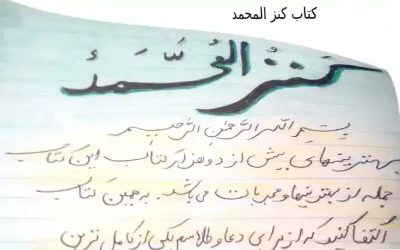 کتاب کنز المحمد
کَنزُ المُحَمَّدُ
بِسْمِ اللهِ الرَّحْمٰنِ الرَّحیمِ
بهترینهای بیش از دو هزار کتاب این کتاب
جمله از بهترینها و مجربات می‌باشد. به همین کتاب
اکتفا کنند که از برای دعا و طلاسم یکی از کامل ترین